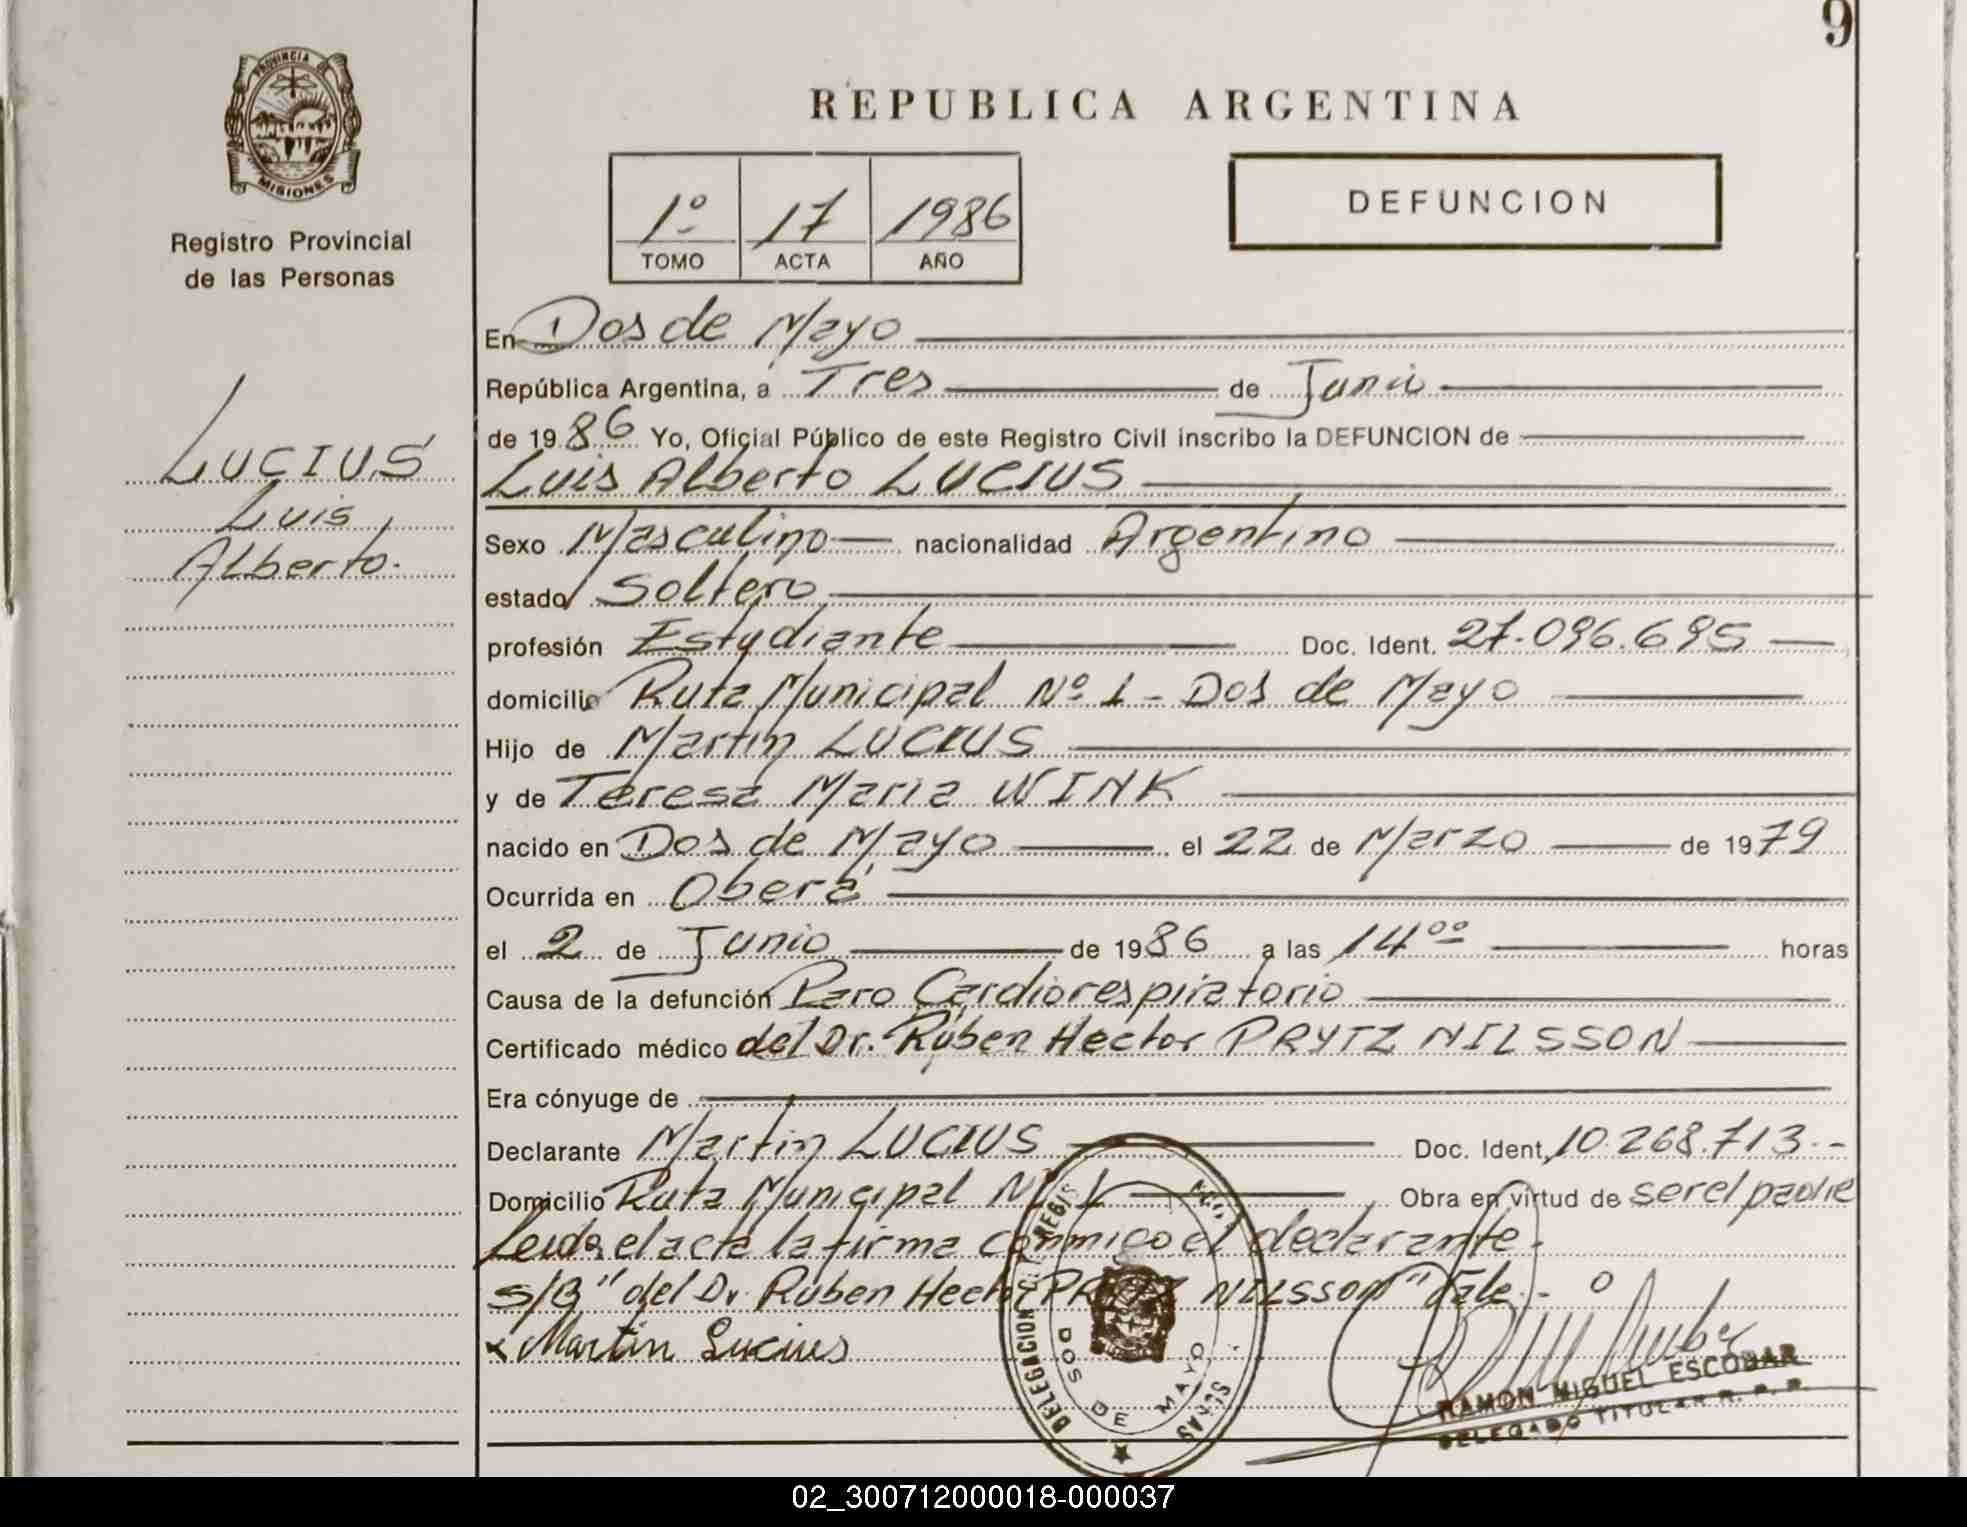 9
PROVINCIA DE
MISIONES
Registro Provincial
de las Personas
REPUBLICA ARGENTINA
1º 17 1986
TOMO ACTA AÑO
DEFUNCION
LUCIUS
Luis
Alberto.
En Dos de Mayo
República Argentina, a Tres de Junio
de 1986 Yo, Oficial Público de este Registro Civil inscribo la DEFUNCION de
Luis Alberto LUCIUS
Sexo Masculino nacionalidad Argentino
estado Soltero
profesión Estudiante Doc. Ident. 27.096.695
domicilio Ruta Municipal Nº 1 - Dos de Mayo
Hijo de Martin LUCIUS
y de Teresa Maria WINK
nacido en Dos de Mayo el 22 de Marzo de 1979
Ocurrida en Oberá
el 2 de Junio de 1986 a las 14 00 horas
Causa de la defunción Paro Cardiorespiratorio
Certificado médico del Dr. Rúben Hector PRYTZ NILSSON
Era cónyuge de
Declarante Martin LUCIUS Doc. Ident. 10.268.713.-
Domicilio Ruta Municipal Nº 1 Obra en virtud de ser el padre
Leida el acta la firma conmigo el declarante.
S/B "del Dr. Rúben Hector PRYTZ NILSSON" Vale.-
x Martin Lucius
DELEGACION
DOS DE MAYO
RAMON MIGUEL ESCOBAR
DELEGADO TITULAR R. P. P.
02_300712000018-000037